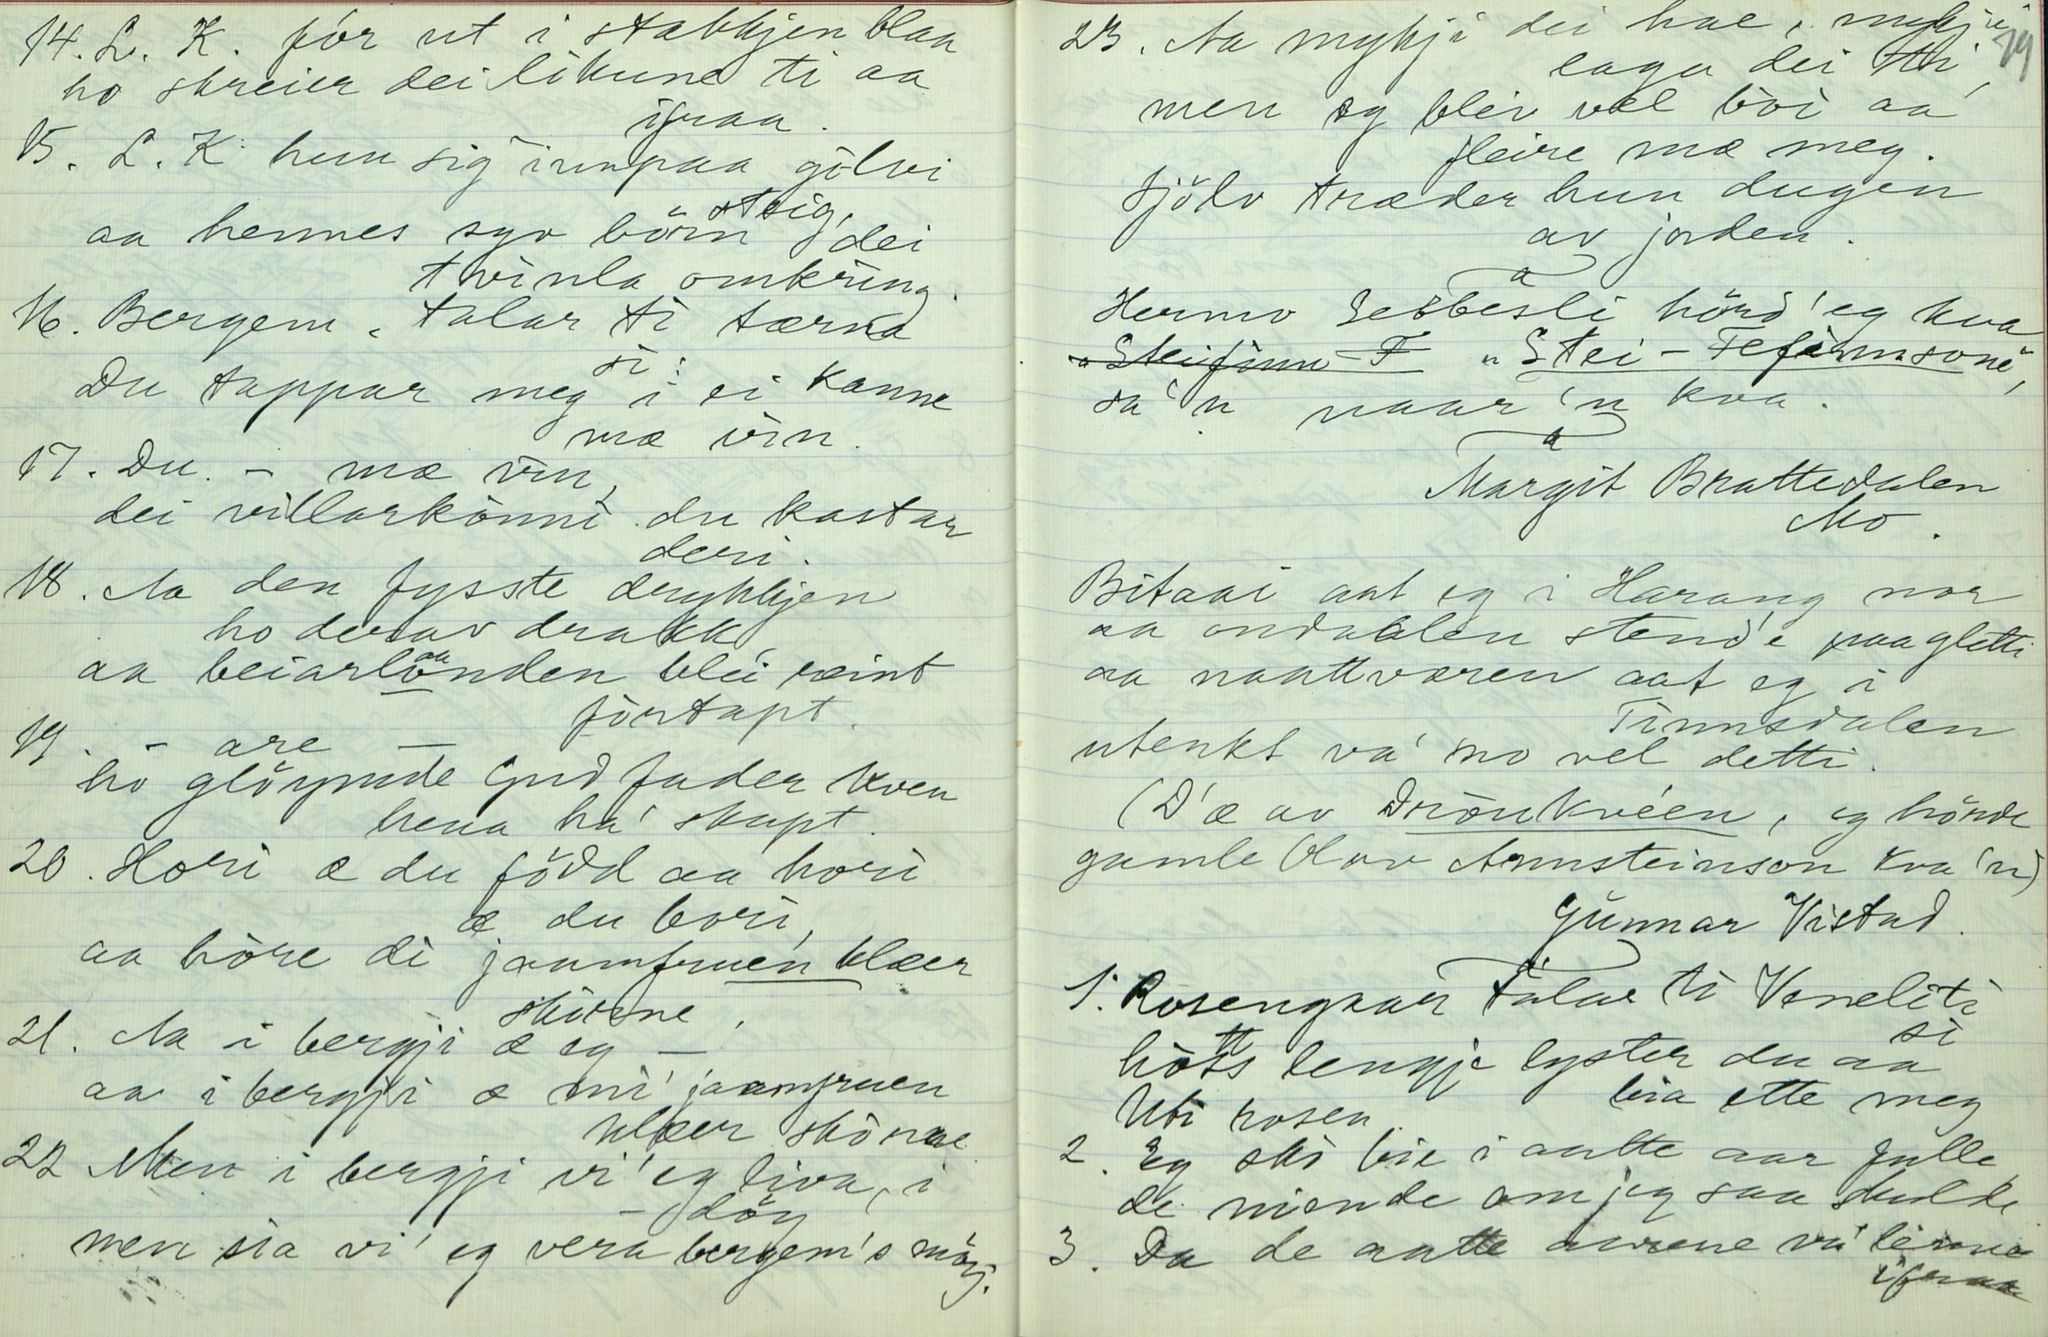 14. L. K. fór ut i stakkjen blaa
ho skreier dei likune ti aa
ifraa.
15. L. K. hun sig innpaa gölvi
steig,
aa hennes syv börn dei
tvinla omkring.
16. Bergem. talar ti tærna
si:
Du tappar meg i ei kanne
mæ vin.
17. Du. - mæ vin,
dei villarkönni du kastar
deri.
18. Aa den fysste drykkjen
ho derav drakk,
aa beiarlonden blei reint
förtapt.
19. - are -
ho glöymde Gud fader kven
hena ha' skapt.
20. Hori æ du född aa hori
æ du bori,
aa höre di jaamfruen klæer
skórne,
21. Aa i bergji æ eg -
aa i bergji æ mi' jaamfruen
klæer skórne
22 Men i bergji vi' eg liva, i
- döy
men sia vi' eg vera bergem's möy.
23. Aa mykji dei hae, mykji ei
19
laga dei ti,
men eg blir vel boi aa
fleire mæ meg.
Sjölv træder hun dugen
av jorden.
Hermo Sebbesli hörd' eg kva
"Steifinn - F "Stei - Fefinnsone,
sa'n naar'n kva.
Margit Brattedalen
Mo.
Bitaai aat eg i Harang nor
aa ondaalen stend'e paa gletti
aa naattværen aat eg i
Tinnsdalen
utenkt va' no vel detti.
(D'æ av Drönkvéen, eg hörde
gamle Olav Armsteinson kva'n)
Gunnar Vistad.
1. Rosengaar talar ti Veneliti
si
hött lengje lyster du aa
bia ette meg
Uti rosen
2. Eg ski bie i aatte aar fulle
de niende om jeg saa skulde
3. Da de aatte aarene va' lirne
ifraa